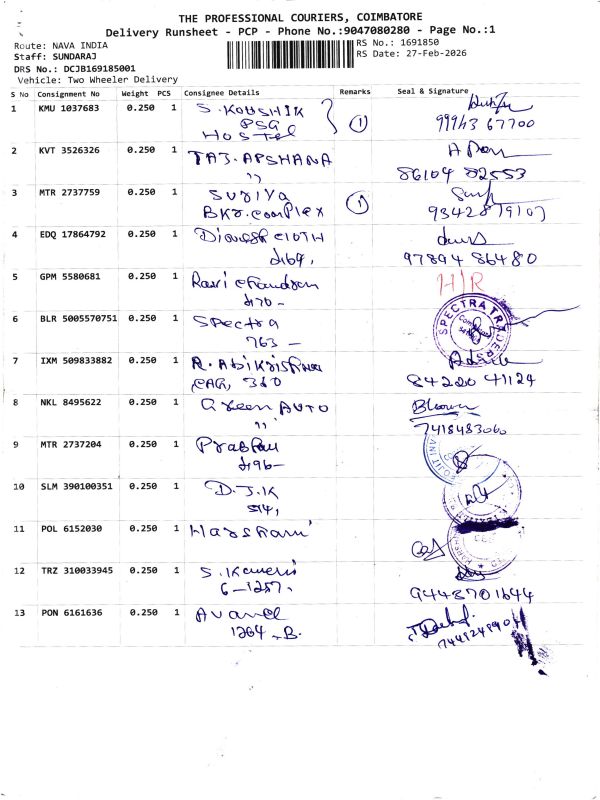 THE PROFESSIONAL COURIERS, COIMBATORE
Delivery Runsheet - PCP - Phone No.:9047080280 - Page No.:1
Route: NAVA INDIA
RS No.: 1691850
Staff: SUNDARAJ
RS Date: 27-Feb-2026
DRS No.: DCJB169185001
Vehicle: Two Wheeler Delivery
S No Consignment No Weight PCS Consignee Details Remarks Seal & Signature
1 KMU 1037683 0.250 1 S. KOUSHIK
PSG
Hostel
1
99943 67700
2 KVT 3526326 0.250 1 TAJ. APSHANA
"
86104 82553
3 MTR 2737759 0.250 1 Suriya
BKR. Complex
1
4 EDQ 17864792 0.250 1 Dinesh cloth
97894 86480
5 GPM 5580681 0.250 1 Ravi chandran
H/R
6 BLR 5005570751 0.250 1 Spectra
763 -
SPECTRA TRADERS
7 IXM 509833882 0.250 1 R. Abikrishna
360
84220 41124
8 NKL 8495622 0.250 1 Green AUTO
"
7418483060
9 MTR 2737204 0.250 1 Prabhu
10 SLM 390100351 0.250 1 D.J.K
514,
11 POL 6152030 0.250 1
12 TRZ 310033945 0.250 1 S.
6-1287.
9448701644
13 PON 6161636 0.250 1
1264 -B.